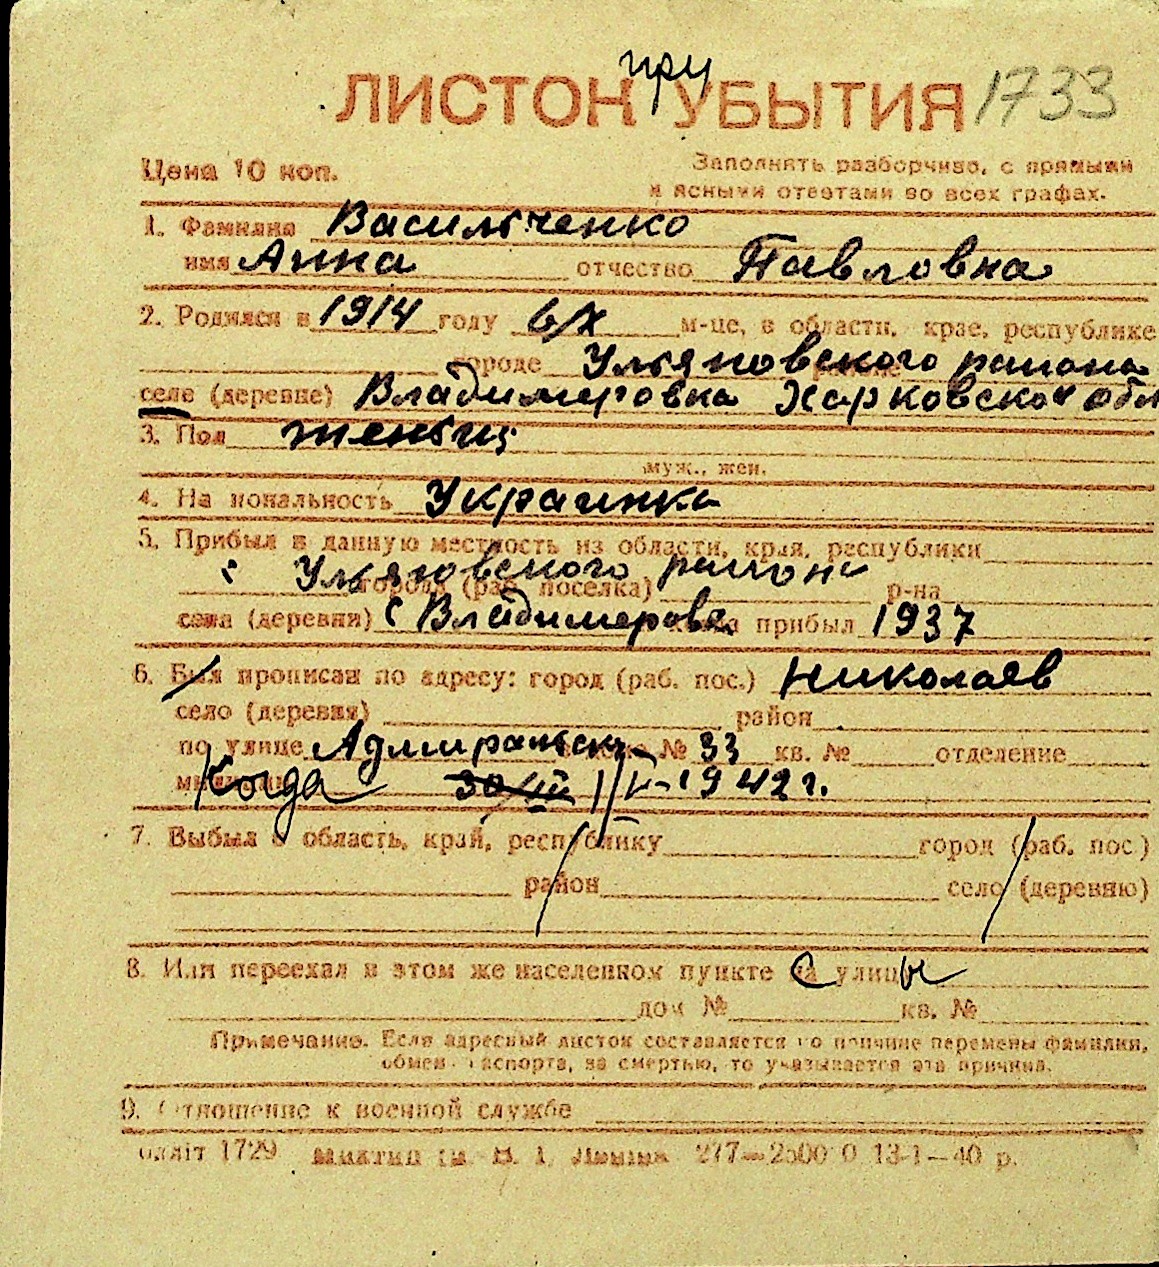 при
ЛИСТОК УБЫТИЯ 1733
Цена 10 коп.
Заполнять разборчиво, с прямыми
и ясными ответами во всех графах.
1. Фамилия Васильченко
имя Анна отчество Павловна
2. Родился в 1914 году 6/X м-це, в области, крае, республике
городе Ульяновского района
селе (деревне) Владимировка Харковской обл
3. Пол
муж., жен.
4. Национальность Украинка
5. Прибыл в данную местность из области, края, республики
с Ульяновского района
города (раб. поселка) р-на
села (деревни) с Владимерова прибыл 1937
6. Был прописан по адресу: город (раб. пос.) Николаев
село (деревня) район
по улице № 33 кв. № отделение
милиции Когда 30/III 1/V-1942 г.
7. Выбыл в область, край, республику город (раб. пос.)
район село (деревню)
8. Или переехал в этом же населенном пункте с улицы
дом № кв. №
Примечание. Если адресный листок составляется по причине перемены фамилии,
обмена паспорта, за смертью, то указывается эта причина.
9. Отношение к военной службе
1729 277—2500 0 13-1—40 р.